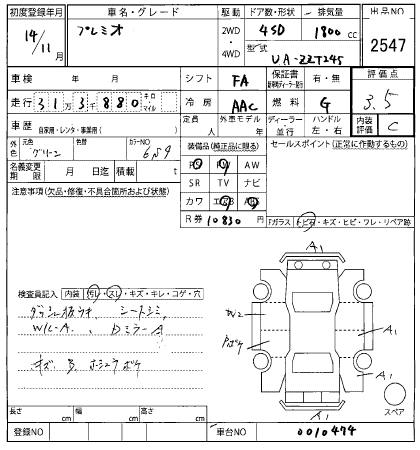 初度登録年月 車名・グレード 駆動 ドア数・形状 排気量 出品NO
14/11月 プレミオ 2WD・4WD 4SD 1800 cc 2547
型式 UA-ZZT245
車検 年 月 シフト FA 保証書 有・無 評価点
走行 31万3千880 キロ・マイル 冷房 AAC 燃料 G 3.5
車歴 自家用・レンタ・事業用( ) 定員 人 外車モデル 年 ディーラー・並行 ハンドル 左・右 内装評価 C
外色 元色 グリーン 色替 カラーNO 6S9
装備品(純正品に限る) セールスポイント(正常に作動するもの)
名義変更期限 月 日迄 積載 t
PS PW AW
SR TV ナビ
カワ エアB ABS
注意事項(欠品・修復・不具合箇所および状態)
R券 10830
Fガラス トビ石・キズ・ヒビ・ワレ・リペア跡
検査員記入 内装 汚レ・スレ・キズ・キレ・コゲ・穴
シートシミ
W/L-A、DミラーA
A1
A1
A1
A1
スペア
長さ cm 幅 cm 高さ cm
登録NO 車台NO 0010474